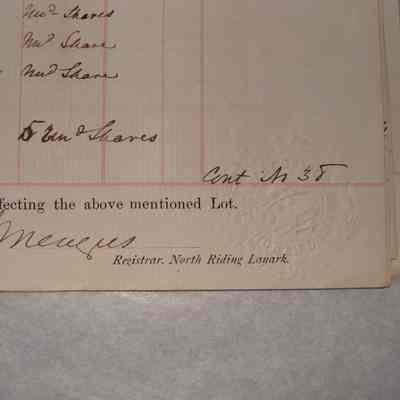 Und Shares
Und Share
Und Share
5 Und Shares
Cont No 38
fecting the above mentioned Lot.
Menzies
Registrar. North Riding Lanark.